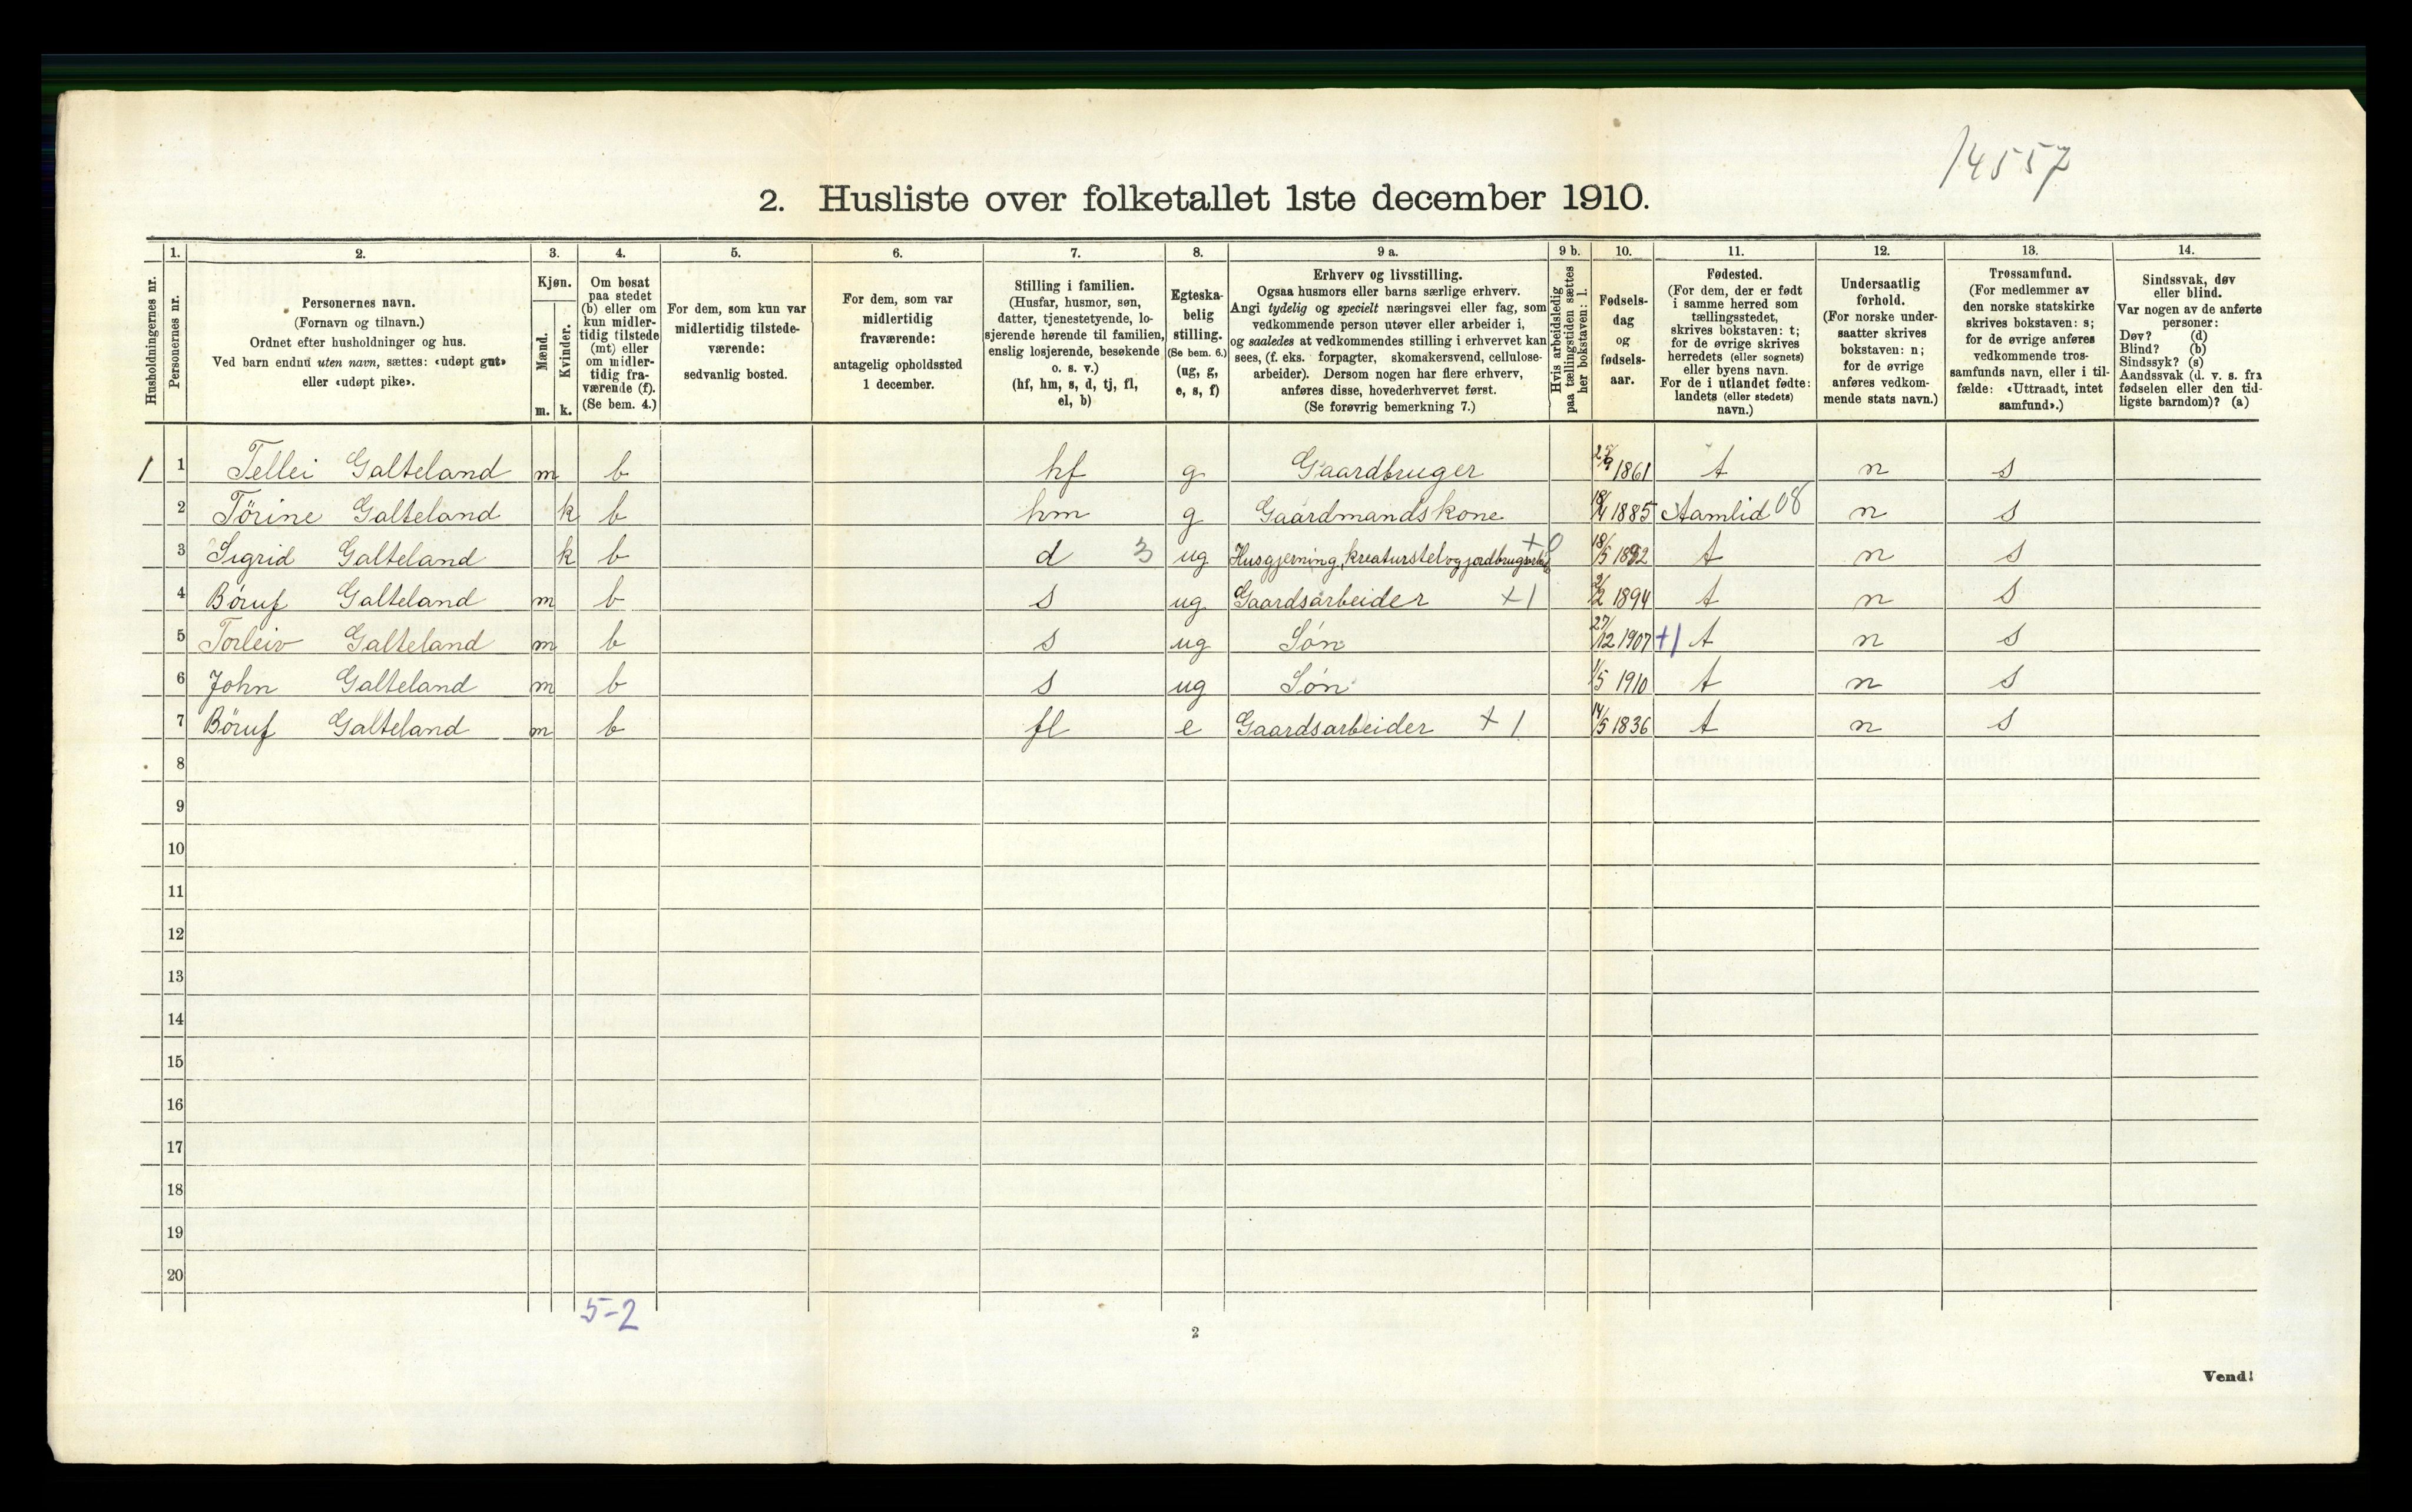 14557
2. Husliste over folketallet 1ste december 1910.
1. 2. 3. 4. 5. 6. 7. 8. 9 a. 9 b. 10. 11. 12. 13. 14.
Husholdningernes nr.
Personernes nr.
Personernes navn.
(Fornavn og tilnavn.)
Ordnet efter husholdninger og hus.
Ved barn endnu uten navn, sættes: «udøpt gut»
eller «udøpt pike».
Kjøn.
Mænd.
Kvinder.
m. k.
Om bosat
paa stedet
(b) eller om
kun midler-
tidig tilstede
(mt) eller
om midler-
tidig fra-
værende (f).
(Se bem. 4.)
For dem, som kun var
midlertidig tilstede-
værende:
sedvanlig bosted.
For dem, som var
midlertidig
fraværende:
antagelig opholdssted
1 december.
Stilling i familien.
(Husfar, husmor, søn,
datter, tjenestetyende, lo-
sjerende hørende til familien,
enslig losjerende, besøkende
o. s. v.)
(hf, hm, s, d, tj, fl,
el, b)
Egteska-
belig
stilling.
(Se bem. 6.)
(ug, g,
e, s, f)
Erhverv og livsstilling.
Ogsaa husmors eller barns særlige erhverv.
Angi tydelig og specielt næringsvei eller fag, som
vedkommende person utøver eller arbeider i,
og saaledes at vedkommendes stilling i erhvervet kan
sees, (f. eks. forpagter, skomakersvend, cellulose-
arbeider). Dersom nogen har flere erhverv,
anføres disse, hovederhvervet først.
(Se forøvrig bemerkning 7.)
Hvis arbeidsledig
paa tællingstiden sættes
her bokstaven: l.
Fødsels-
dag
og
fødsels-
aar.
Fødested.
(For dem, der er født
i samme herred som
tællingsstedet,
skrives bokstaven: t;
for de øvrige skrives
herredets (eller sognets)
eller byens navn.
For de i utlandet fødte:
landets (eller stedets)
navn.)
Undersaatlig
forhold.
(For norske under-
saatter skrives
bokstaven: n;
for de øvrige
anføres vedkom-
mende stats navn.)
Trossamfund.
(For medlemmer av
den norske statskirke
skrives bokstaven: s;
for de øvrige anføres
vedkommende tros-
samfunds navn, eller i til-
fælde: «Uttraadt, intet
samfund».)
Sindssvak, døv
eller blind.
Var nogen av de anførte
personer:
Døv? (d)
Blind? (b)
Sindssyk? (s)
Aandssvak (d. v. s. fra
fødselen eller den tid-
ligste barndom)? (a)
1 1 Tellei Galteland m b hf g Gaardbruger 1861 t n s
2 Törine Galteland k b hm g Gaardmandskone 18/4 1885 Aamlid 08 n s
3 Sigrid Galteland k b d 3 ug Husgjerning, kreaturstel og jordbrugsarbeide +0 18/5 1892 t n s
4 Böruf Galteland m b s ug Gaardsarbeider +1 2/2 1894 t n s
5 Torleiv Galteland m b s ug Søn 27/12 1907 +1 t n s
6 John Galteland m b s ug Søn 1/5 1910 t n s
7 Böruf Galteland m b fl e Gaardsarbeider +1 14/5 1836 t n s
8
9
10
11
12
13
14
15
16
17
18
19
20
5-2
2
Vend!